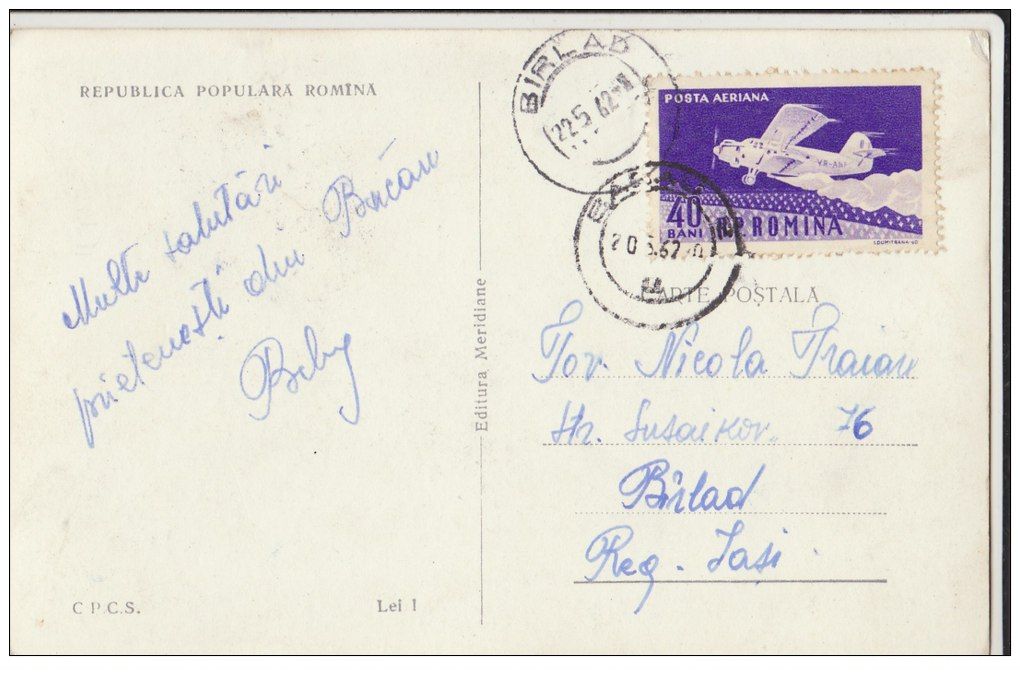 REPUBLICA POPULARĂ ROMÎNĂ
Multe salutări
prietenești din Bacău
Beby
C.P.C.S.
Lei 1
Editura Meridiane
BÎRLAD
22.5.62
BACĂU
20.5.62
POSTA AERIANA
YR-ANF
40
BANI
R.P.ROMINA
I.DUMITRANA-60
CARTE POȘTALĂ
Tov. Nicola Traian
Str. Susaikov. 76
Bîrlad
Reg. Iași.